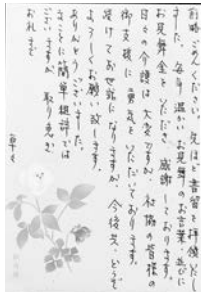 前略ごめんください。先ほど書留を拝領致し
ました。毎月温かいお見舞のお言葉、並びに
お見舞金をいただき、感謝しております。
日々の介護は大変ですが、組協の皆様の
御支援に勇気をいただいております。
後けてお世話になりますが、今後共、どうぞ
よろしくお願い致します。
ありがとうございました。
まことに簡単粗辞では
ございますが、取り急ぎ
お礼まで
草々